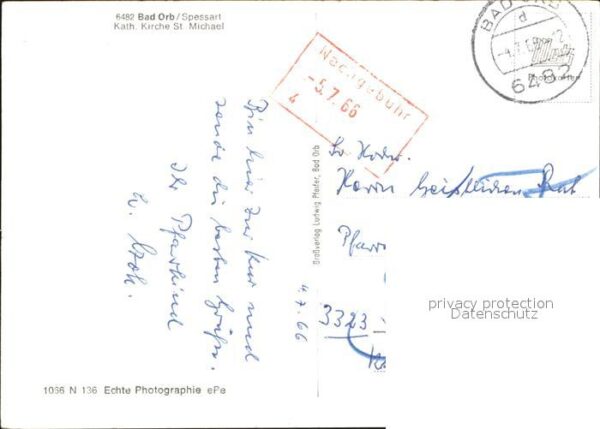 6482 Bad Orb / Spessart
Kath. Kirche St. Michael
BAD ORB
d
-4.7.66
6482
Nachgebühr
-5.7.66
4
Bin hier zur Kur und
sende die besten Grüße.
Ihr Pfarrkind
4.7.66
Großverlag Ludwig Pfeifer, Bad Orb
Herrn Geistlichen Rat
Pfarr
3323
privacy protection
Datenschutz
1066 N 136 Echte Photographie ePe